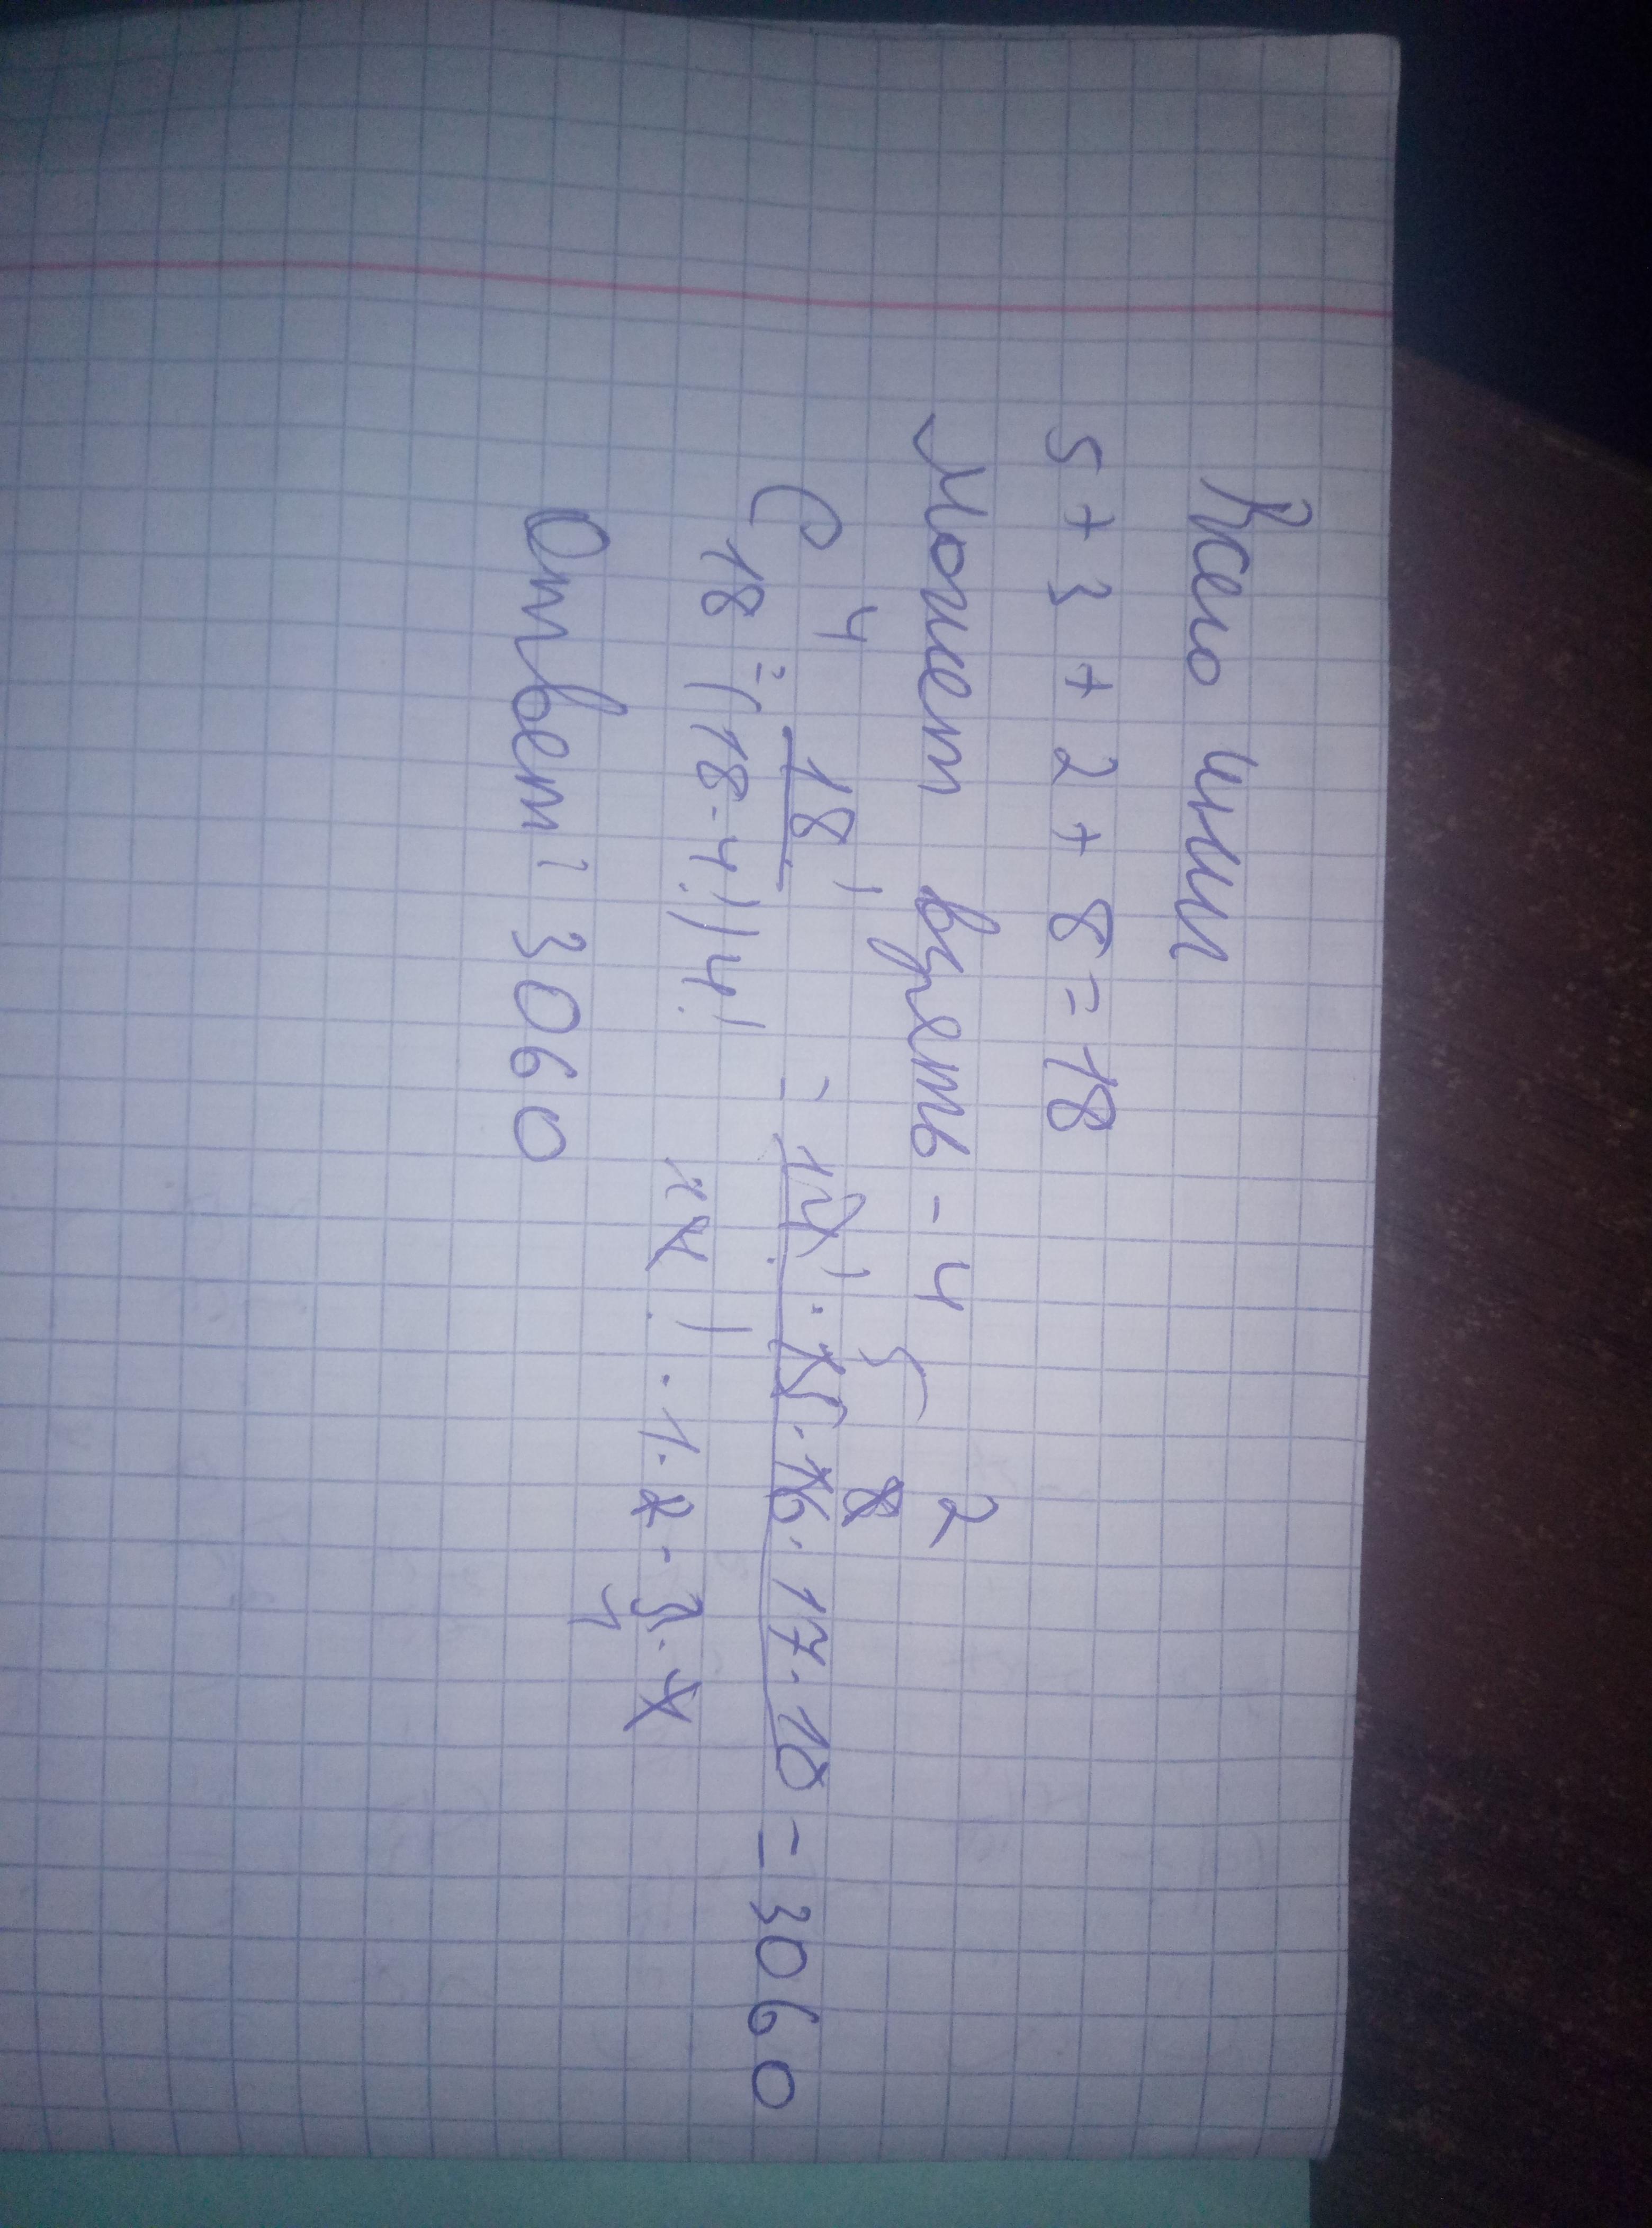 Всего книг
5 + 3 + 2 + 8 = 18
Может взять - 4
C₁₈⁴ = 18! / (18-4!)4! = 14! · 15 · 16 · 17 · 18 / 14! · 1 · 2 · 3 · 4 = 3060
5 8 2
1
Ответ: 3060